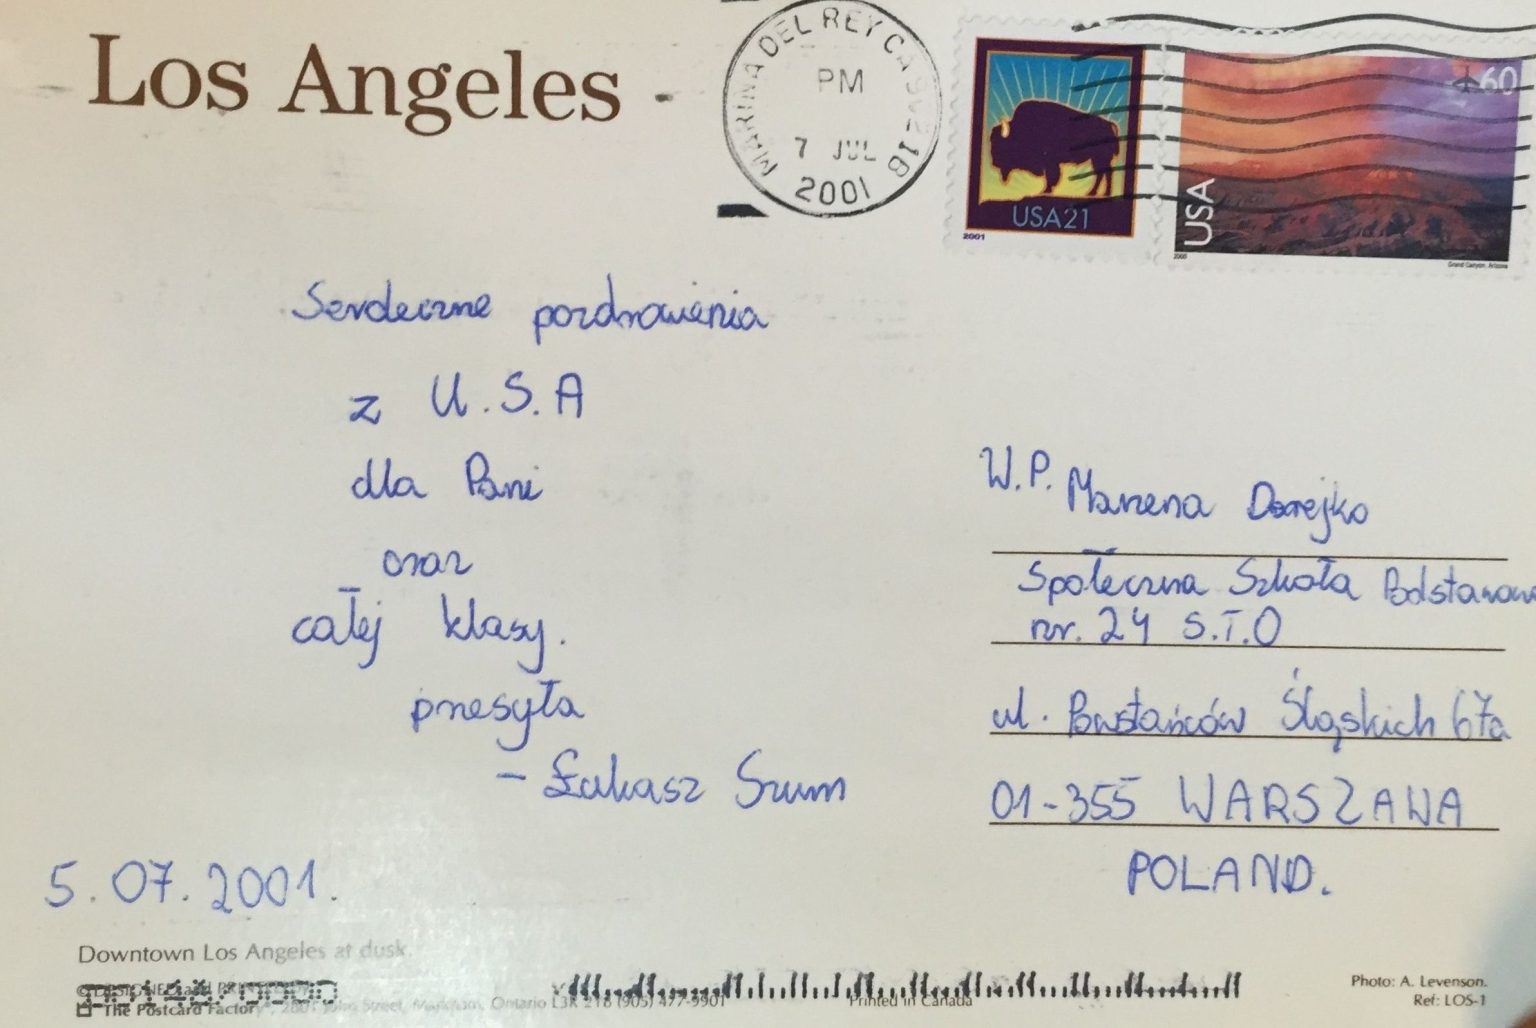 Los Angeles
MARINA DEL REY CA
PM
7 JUL
2001
USA21
2001
USA
60
2000
Grand Canyon, Arizona
Serdeczne pozdrowienia
z U.S.A
dla Pani
oraz
całej klasy.
przesyła
- Łukasz Szum
5.07.2001.
W.P. Marzena Darejko
Społeczna Szkoła Podstawowa
nr. 24 S.T.O
ul. Powstańców Śląskich 67a
01-355 WARSZAWA
POLAND.
Downtown Los Angeles at dusk.
The Postcard Factory John Street, Markham, Ontario L3R (905) 477-9901
Printed in Canada
Photo: A. Levenson.
Ref: LOS-1